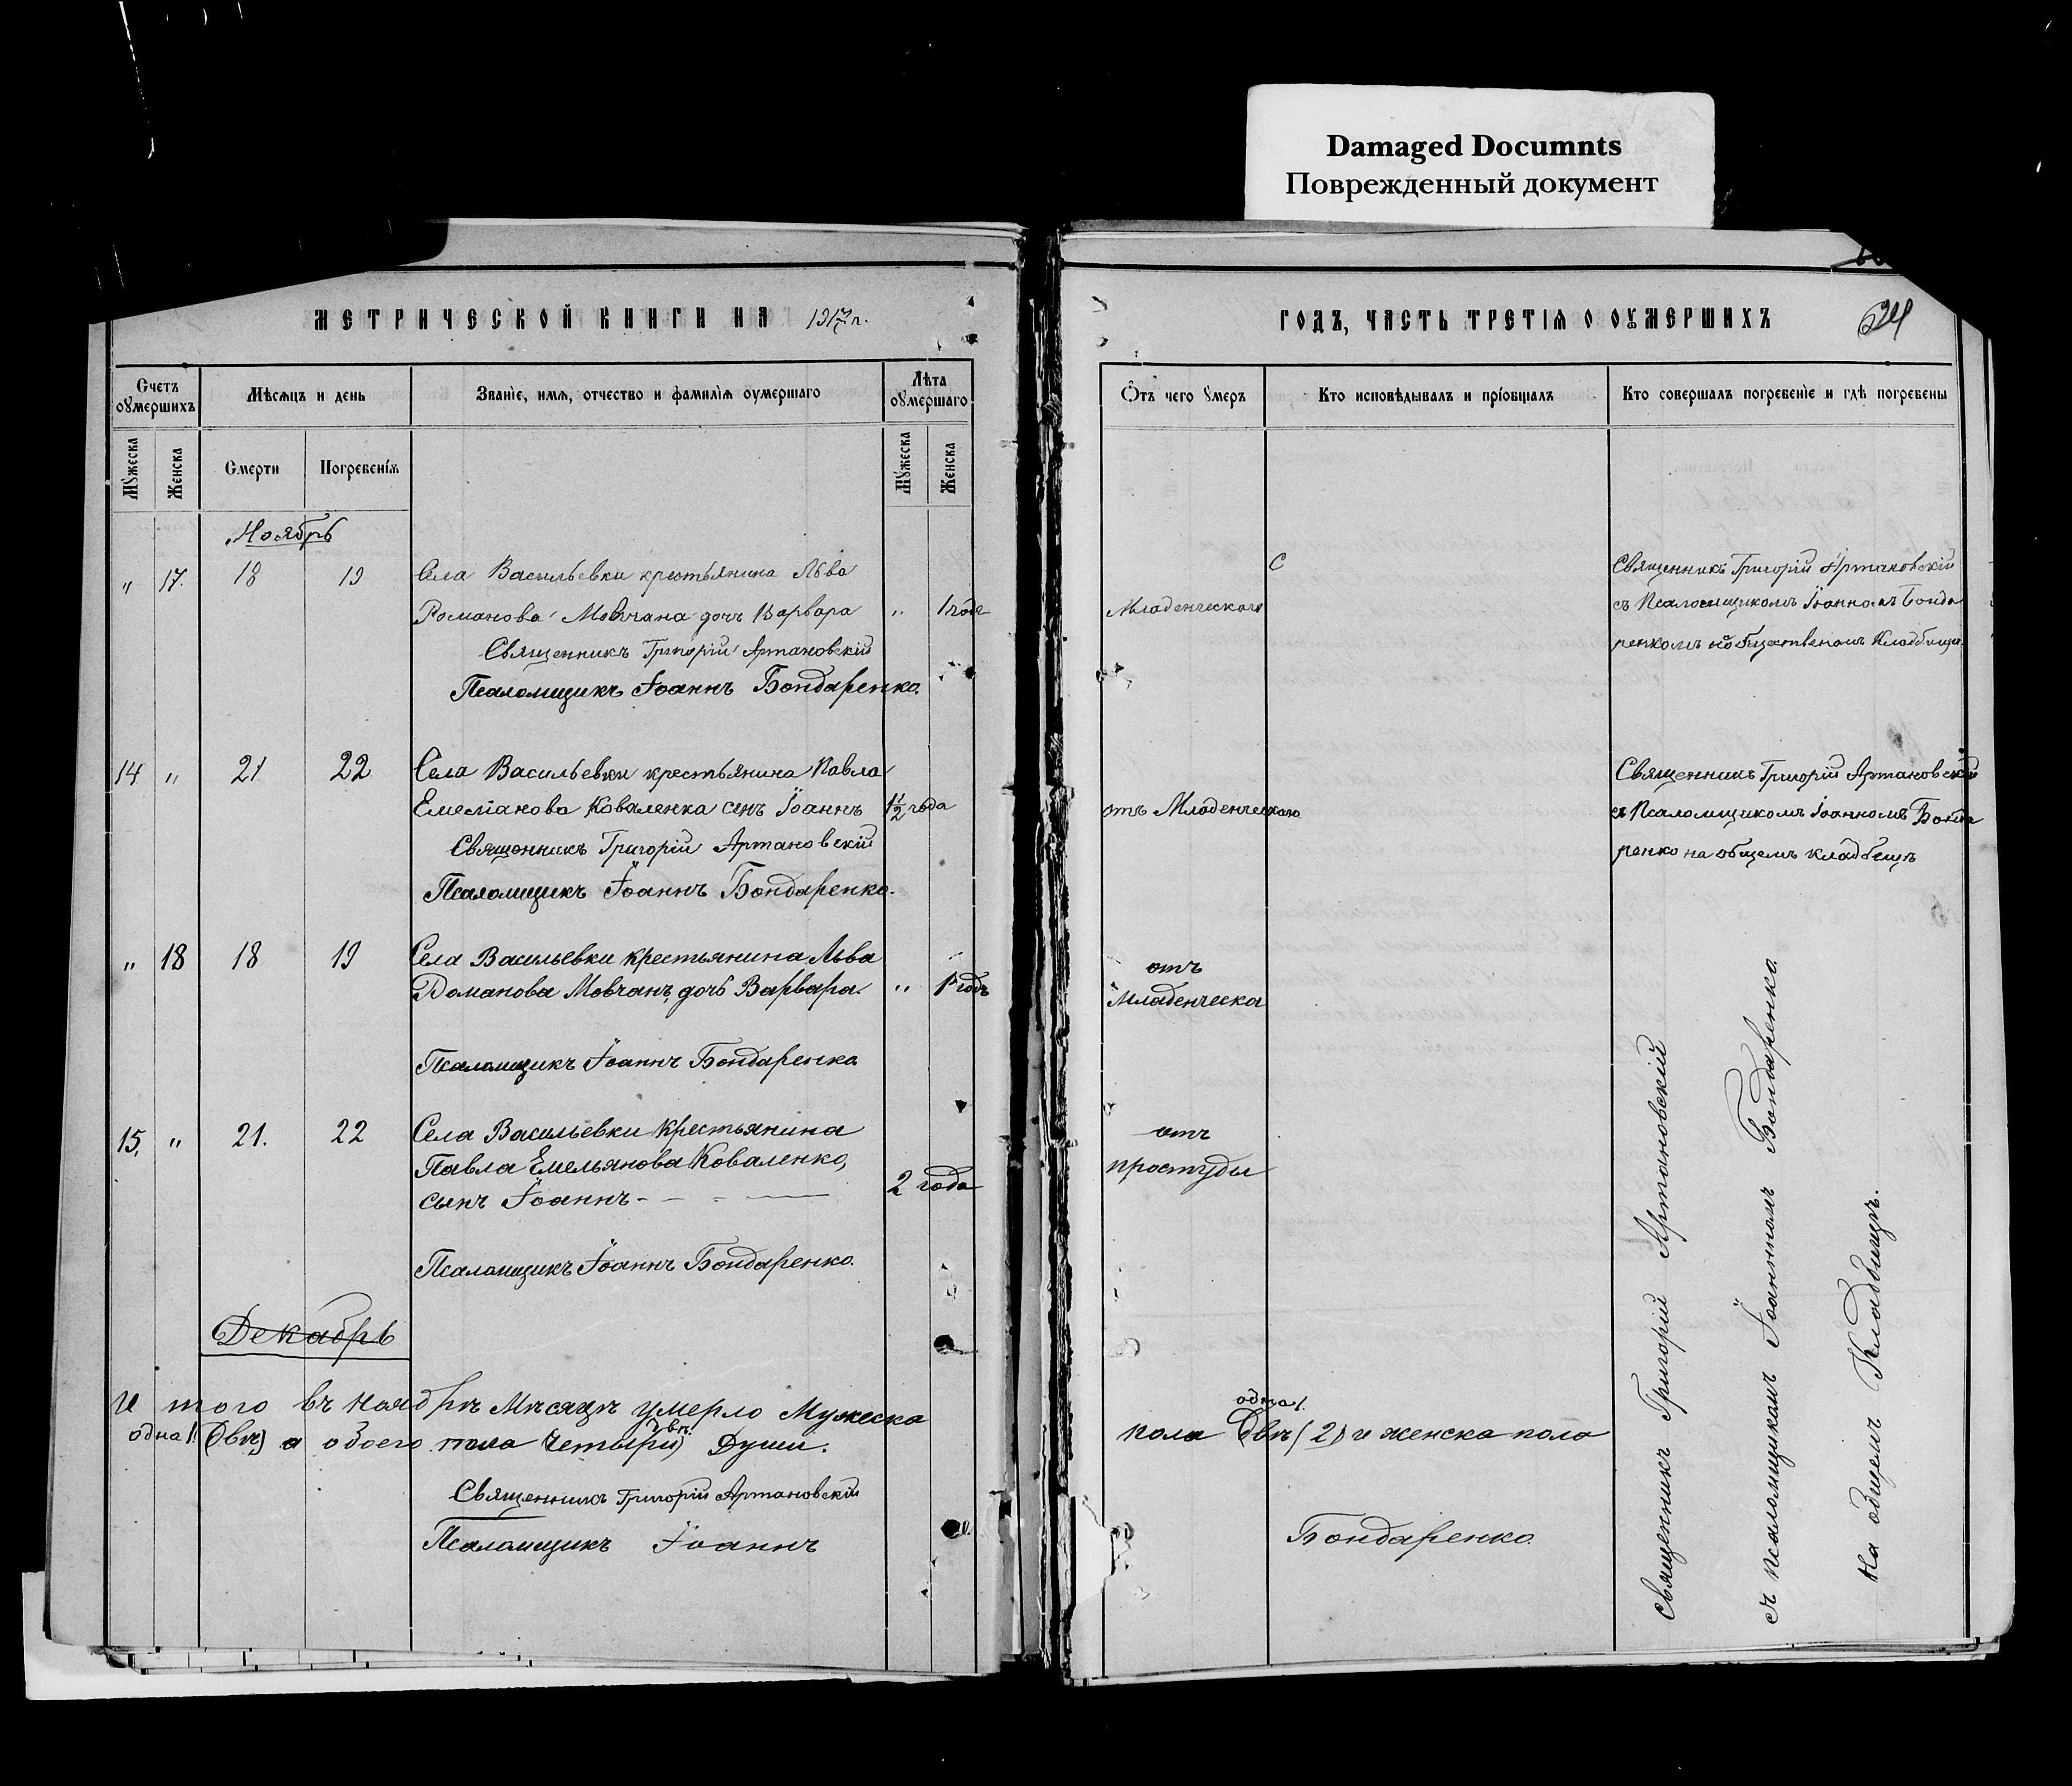 Damaged Documnts
Поврежденный документ
МЕТРИЧЕСКОЙ КНИГИ НА 1917 г.
ГОДЪ, ЧАСТЬ ТРЕТІЯ О ОУМЕРШИХЪ
Счетъ оумершихъ
Мѣсяцъ и день
Званіе, имя, отчество и фамилія оумершаго
Лѣта оумершаго
Мужеска
Женска
Смерти
Погребенія
Мужеска
Женска
Отъ чего умеръ
Кто исповѣдывалъ и пріобщалъ
Кто совершалъ погребеніе и гдѣ погребены
Ноябрь
" 17. 18 19 Села Васильевки крестьянина Льва
Романова Мовчана дочь Варвара " 1 года
Священникъ Григорій Артановскій
Псаломщикъ Іоаннъ Бондаренко.
Младенческаго
С
Священникъ Григорій Артановскій
съ Псаломщикомъ Іоанномъ Бонда
ренкомъ на общественомъ Кладбище
14 " 21 22 Села Васильевки крестьянина Павла
Емеліанова Коваленка сынъ Іоаннъ 1½ года
Священникъ Григорій Артановскій
Псаломщикъ Іоаннъ Бондаренко.
отъ Младенческаго
Священникъ Григорій Артановскій
съ Псаломщикомъ Іоанномъ Бонда
ренко на общемъ кладбещъ
" 18 18 19 Села Васильевки крестьянина Льва
Романова Мовчанъ, дочь Варвара. " 1 годъ
Псаломщикъ Іоаннъ Бондаренко
отъ
Младенческа
15. " 21. 22 Села Васильевки крестьянина
Павла Емельянова Коваленко,
сынъ Іоаннъ - 2 года
Псаломщикъ Іоаннъ Бондаренко.
отъ
простуды
Священникъ Григорій Артановскій
съ псаломщикамъ Іоанномъ Бондаренко.
На общемъ Кладбищѣ.
Декабрь
И того въ Ноябрѣ Мѣсяцѣ умерло Мужеска
одна 1.
пола Двѣ (2) и женска пола
одна 1. (Двѣ) а обоего пола (четыри) Души.
двѣ.
Священникъ Григорій Артановскій
Псаломщикъ Іоаннъ
Бондаренко.